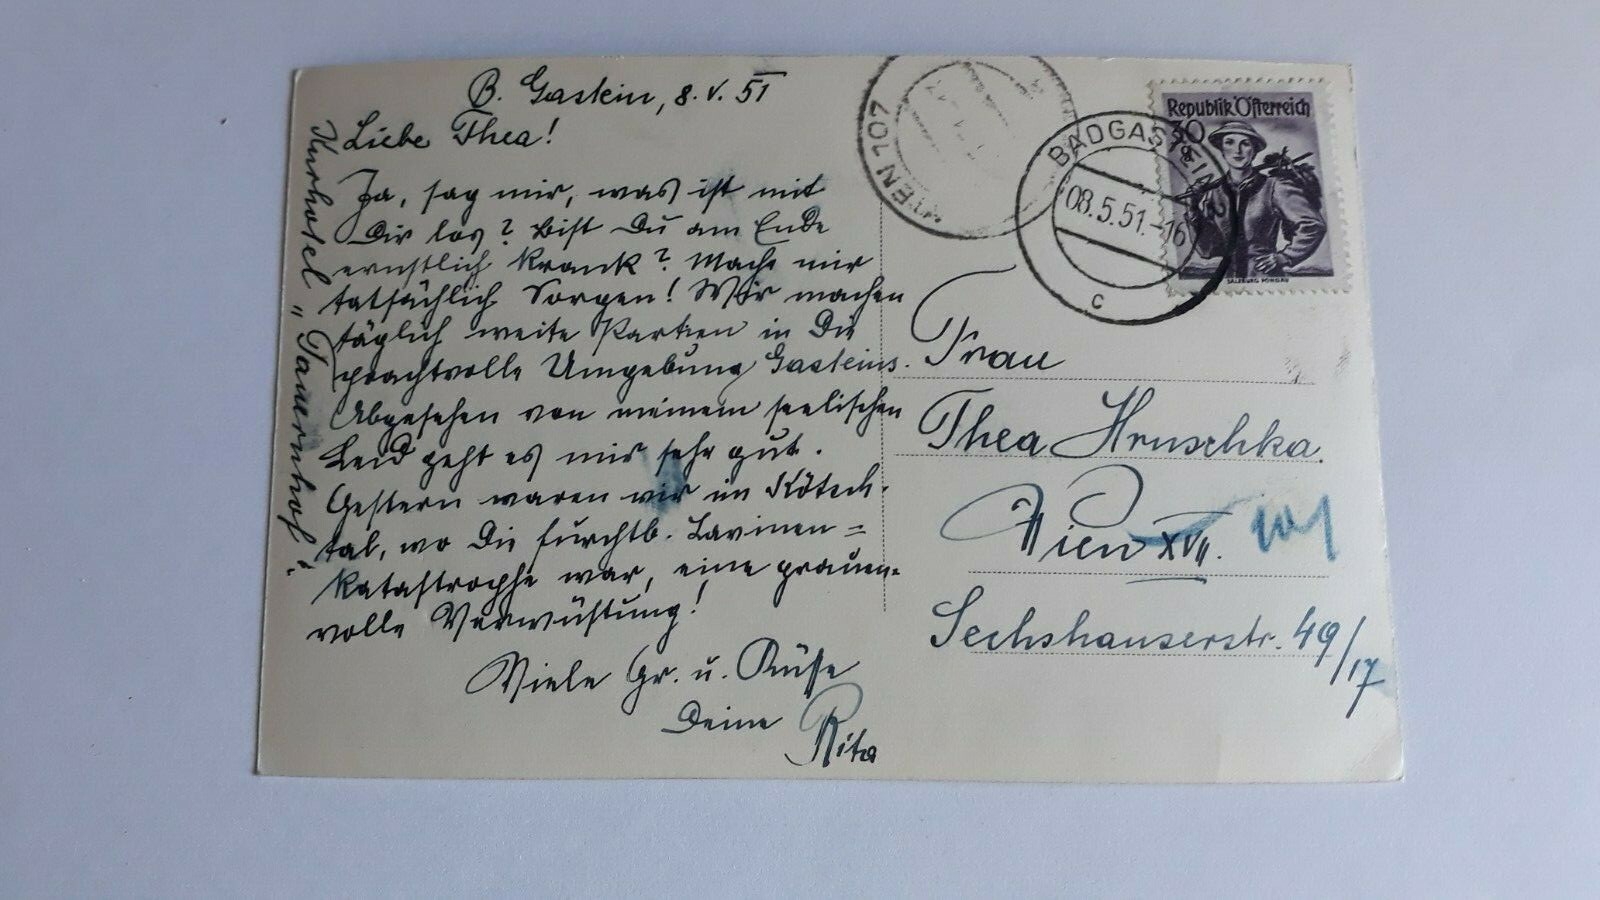 B. Gastein, 8. V. 51
Liebe Thea!
Ja, sag mir, was ist mit
Dir los? Bist Du am Ende
ernstlich krank? Mache mir
tatsächlich Sorgen! Wir machen
täglich weite Partien in die
prachtvolle Umgebung Gasteins.
Abgesehen von meinem seelischen
Leid geht es mir sehr gut.
Gestern waren wir im Kötsch-
tal, wo die furchtb. Lavinen=
katastrophe war, eine grauen-
volle Verwüstung!
Viele Gr. u. Küsse
Deine Rita
Kurhotel „Tauernhof"
WIEN 107
BADGASTEIN
08.5.51.-16
C
Republik Österreich
30 g
SALZBURG PONGAU
Frau
Thea Hruschka.
Wien XVII. 101
Sechshauserstr. 49/17